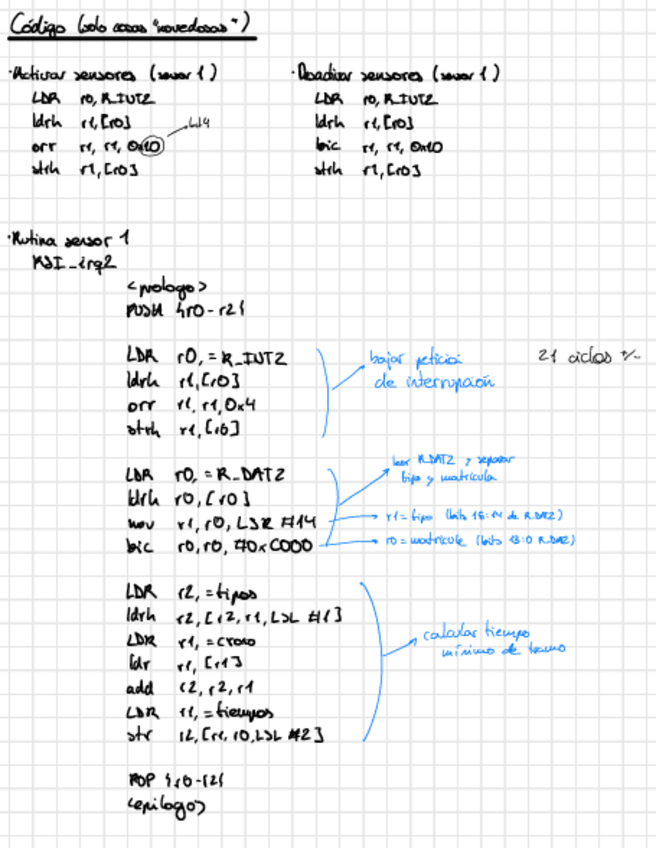 Código (solo cosas "novedosas")
·Activar sensores (sensor 1)
LDR r0, R_INT2
ldrh r1,[r0]
orr r1, r1, 0x10
bit4
strh r1,[r0]
·Desactivar sensores (sensor 1)
LDR r0, R_INT2
ldrh r1,[r0]
bic r1, r1, 0x10
strh r1,[r0]
·Rutina sensor 1
RSI_irq2
<prologo>
PUSH {r0-r2}
LDR r0, = R_INT2
ldrh r1,[r0]
orr r1, r1, 0x4
strh r1,[r0]
bajar petición
de interrupción
21 ciclos +/-
LDR r0, = R_DAT2
ldrh r0, [r0]
mov r1, r0, LSR #14
bic r0, r0, #0xC000
leer R_DAT2 y separar
tipo y matrícula
r1 = tipo (bits 15:14 de R_DAT2)
r0 = matrícula (bits 13:0 R_DAT2)
LDR r2, = tipos
ldrh r2, [r2, r1, LSL #1]
LDR r1, = crono
ldr r1, [r1]
add r2, r2, r1
LDR r1, = tiempos
str r2, [r1, r0, LSL #2]
calcular tiempo
mínimo de tramo
POP {r0-r2}
<epilogo>